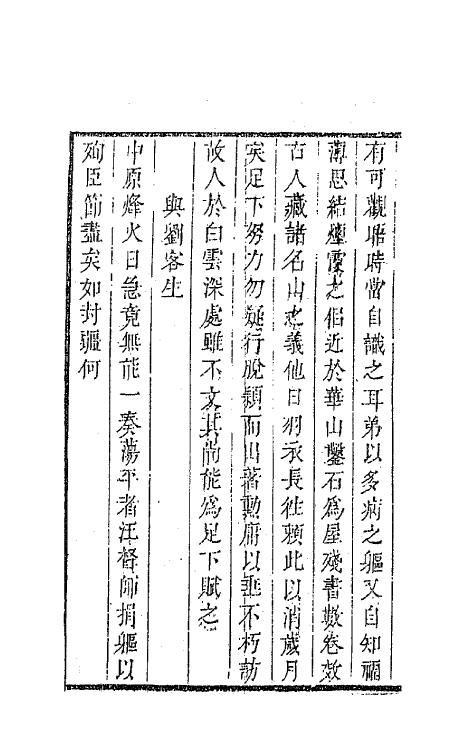 有可觀晤時當自識之耳弟以多病之軀又自知福
薄思結煙霞之侣近於華山鑿石為屋殘書數卷效
古人藏諸名山之義他日羽衣長往賴此以消歲月
矣足下努力勿疑行脫穎而出著勳庸以垂不朽訪
故人於白雲深處雖不文其尚能為足下賦之
與劉客生
中原烽火日急竟無能一奏蕩平者汪督師捐軀以
殉臣節盡矣如封疆何